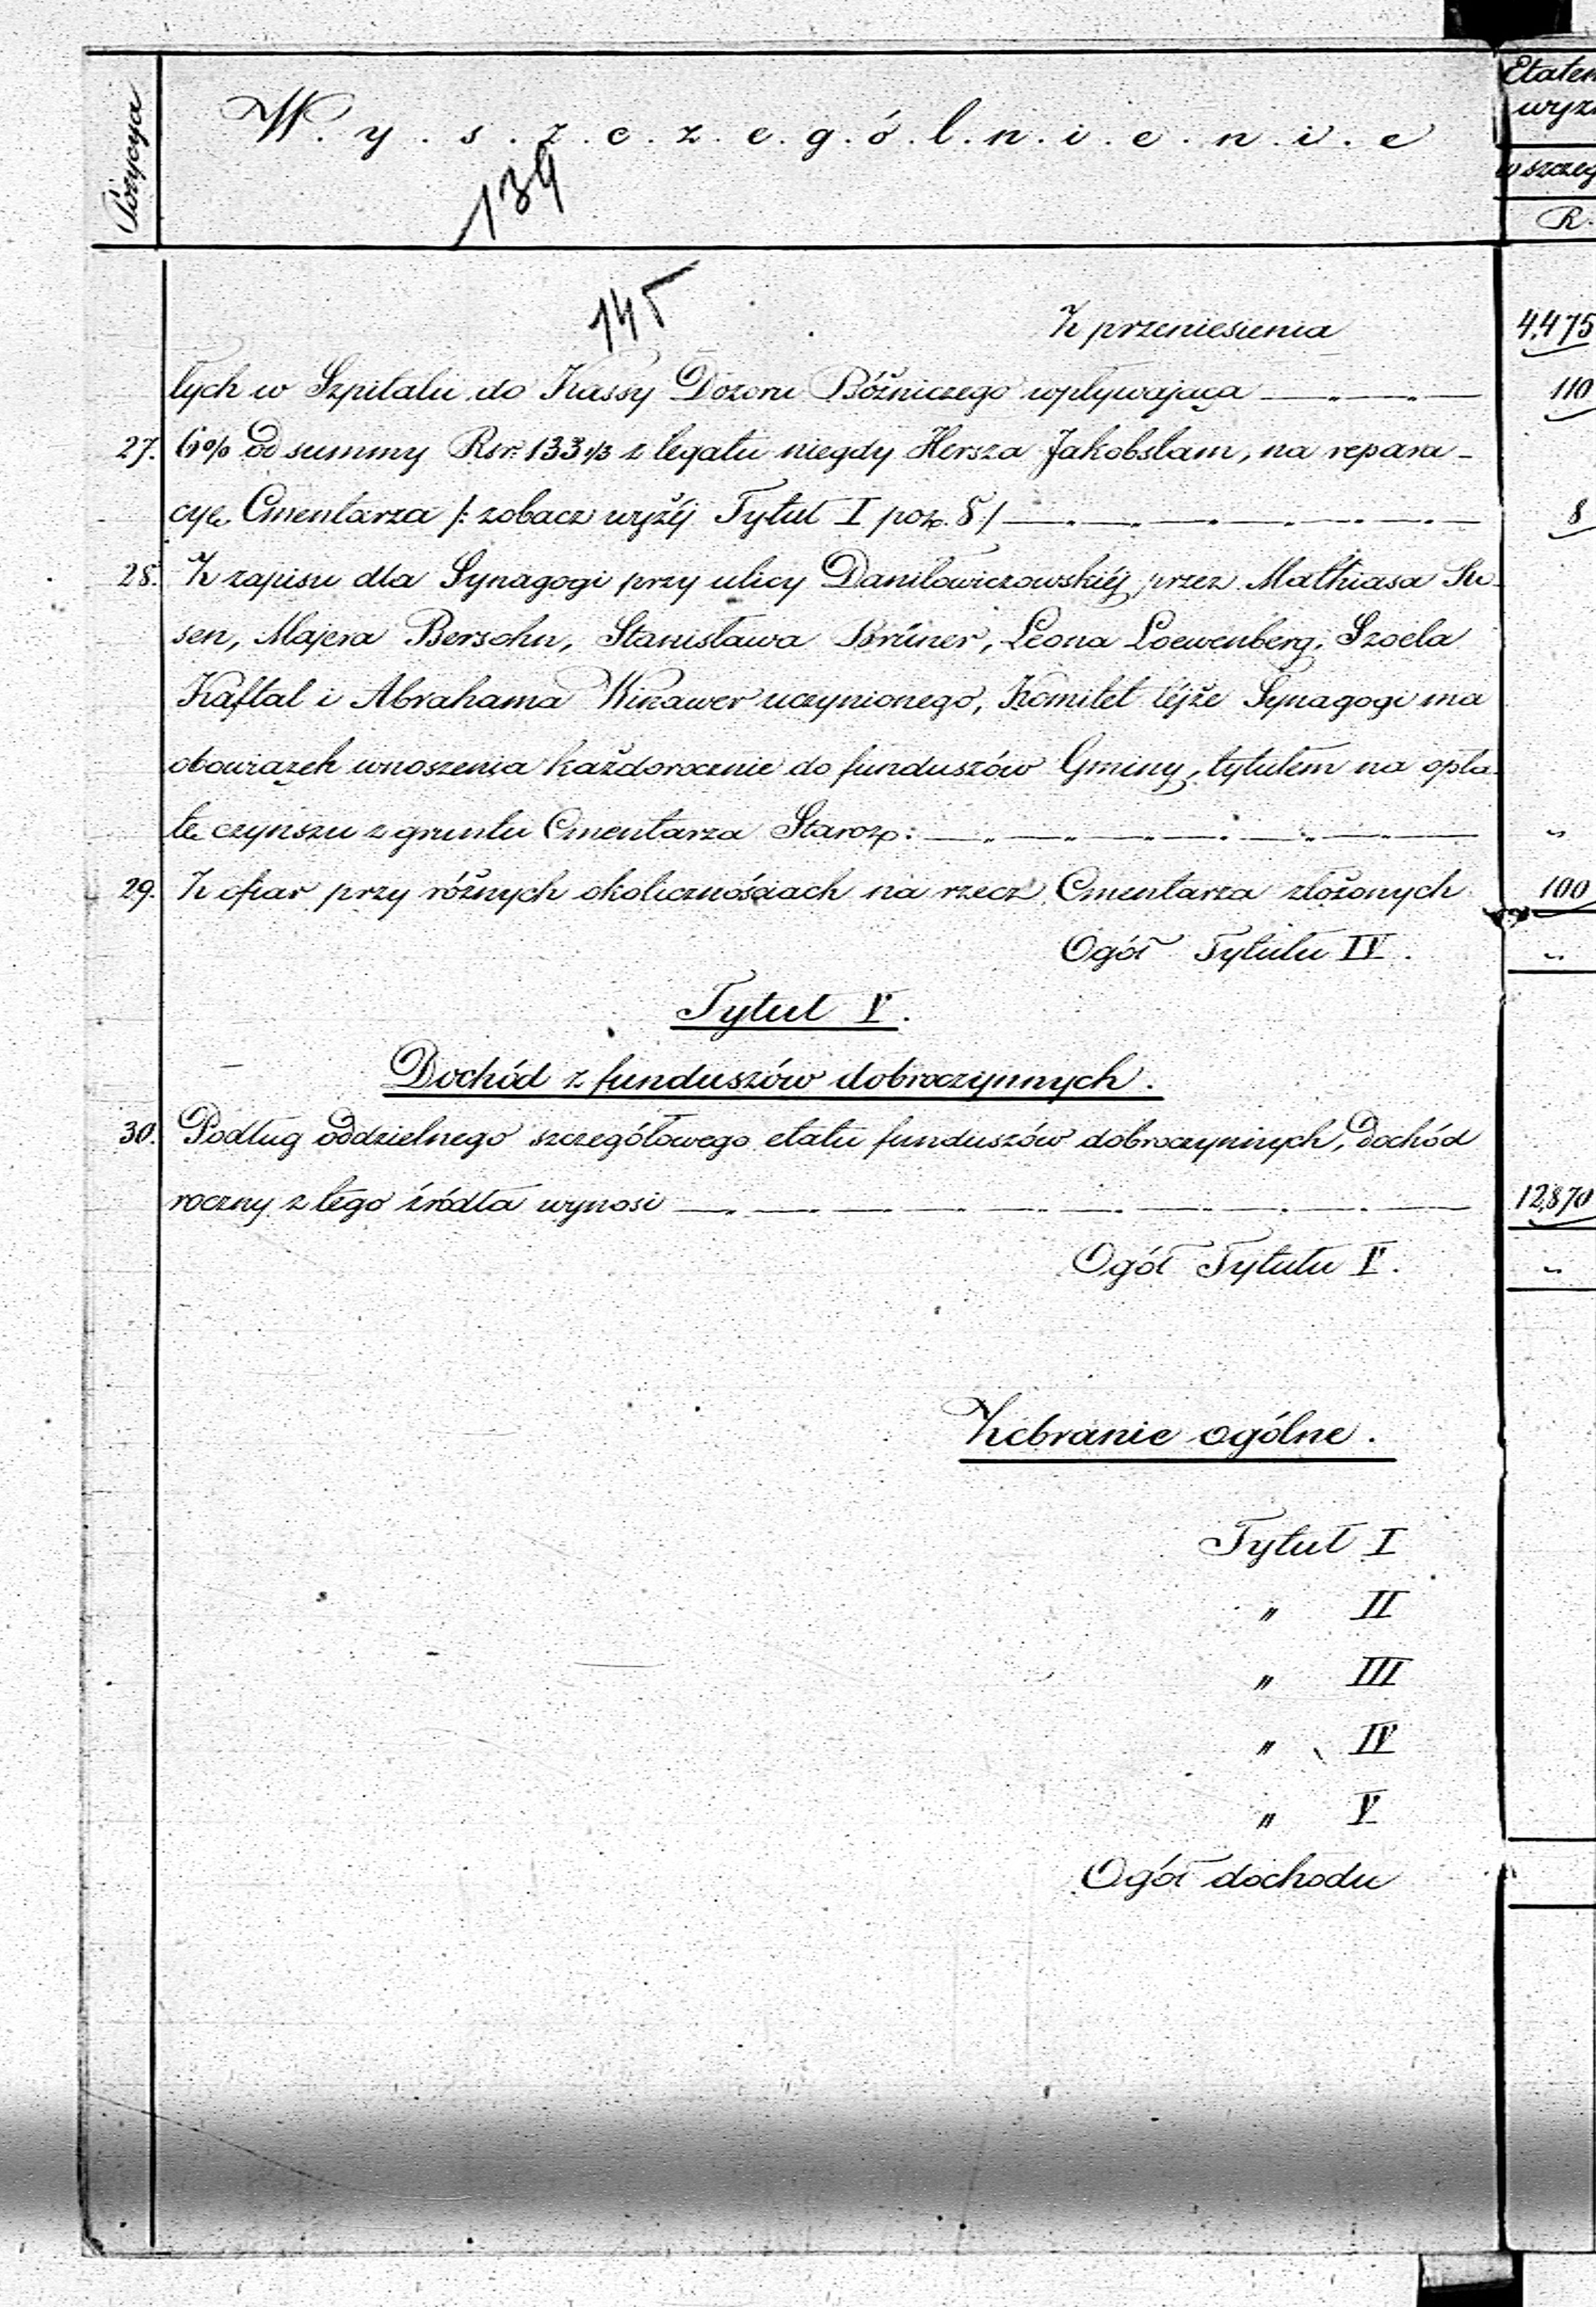 Pozycya
W.y.s.z.c.z.e.g.ó.l.n.i.e.n.i.e
Etatem
wyz
w szczeg
R.
139
145
Z przeniesienia 4,475
łych w Szpitalu do Kassy Dozoru Bóżniczego wpływająca 110
27. 6% od summy Rsr. 133 1/3 z legatu niegdy Hersza Jakobslam, na repara-
cyę Cmentarza /: zobacz wyżéj Tytuł I poz. 8 :/ 8
28. Z zapisu dla Synagogi przy ulicy Daniłowiczowskiéj przez Mathiasa Ro-
sen, Majera Bersohn, Stanisława Brüner, Leona Loewenberg, Szoela
Kaftal i Abrahama Winawer uczynionego, Komitet téjże Synagogi ma
obowiązek wnoszenia każdorocznie do funduszów Gminy, tytułem na opła-
tę czynszu z gruntu Cmentarza Staroz: "
29. Z ofiar przy różnych okolicznościach na rzecz Cmentarza złożonych 100
Ogół Tytułu IV. "
Tytuł V.
Dochód z funduszów dobroczynnych.
30. Podług oddzielnego szczegółowego etatu funduszów dobroczynnych, dochód
roczny z tego źródła wynosi 12,870
Ogół Tytułu V. "
Zebranie ogólne.
Tytuł I
" II
" III
" IV
" V
Ogół dochodu